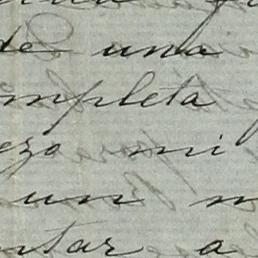 de una
mpleta
ezo mi
un m
ntar a